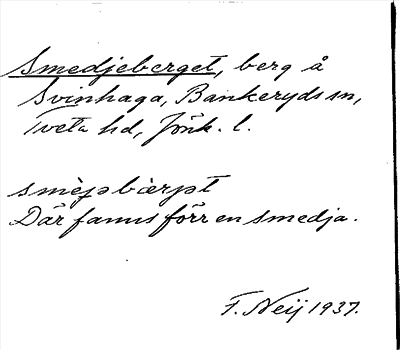 Smedjeberget, berg å
Svinhaga, Bankeryds sn,
Tveta hd, Jönk. l.
Där fanns förr en smedja.
F. Neij 1937.